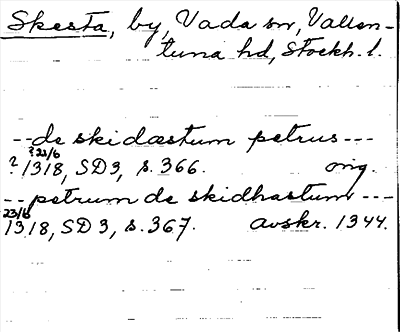 Skesta, by, Vada sn, Vallen-
tuna hd, Stockh. l.
-- de skidæstum petrus ---
? 22/6
? 1318, SD 3, s. 366. orig.
-- petrum de skidhastum ---
23/6
1318, SD 3, s. 367. avskr. 1344.